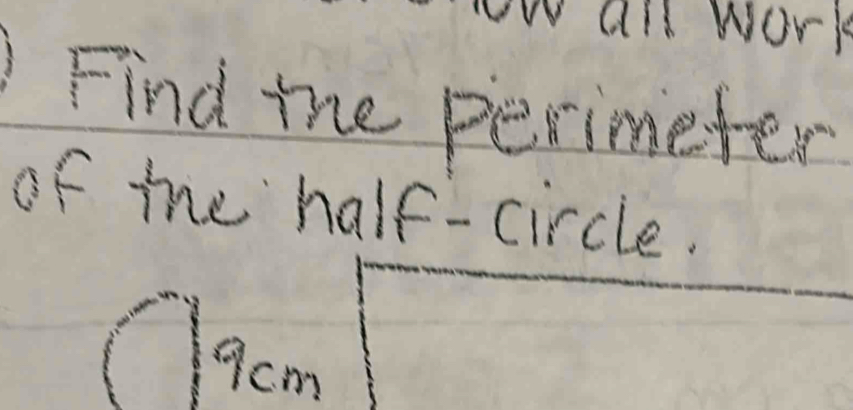 all work
Find the perimeter
of the half-circle.
9cm